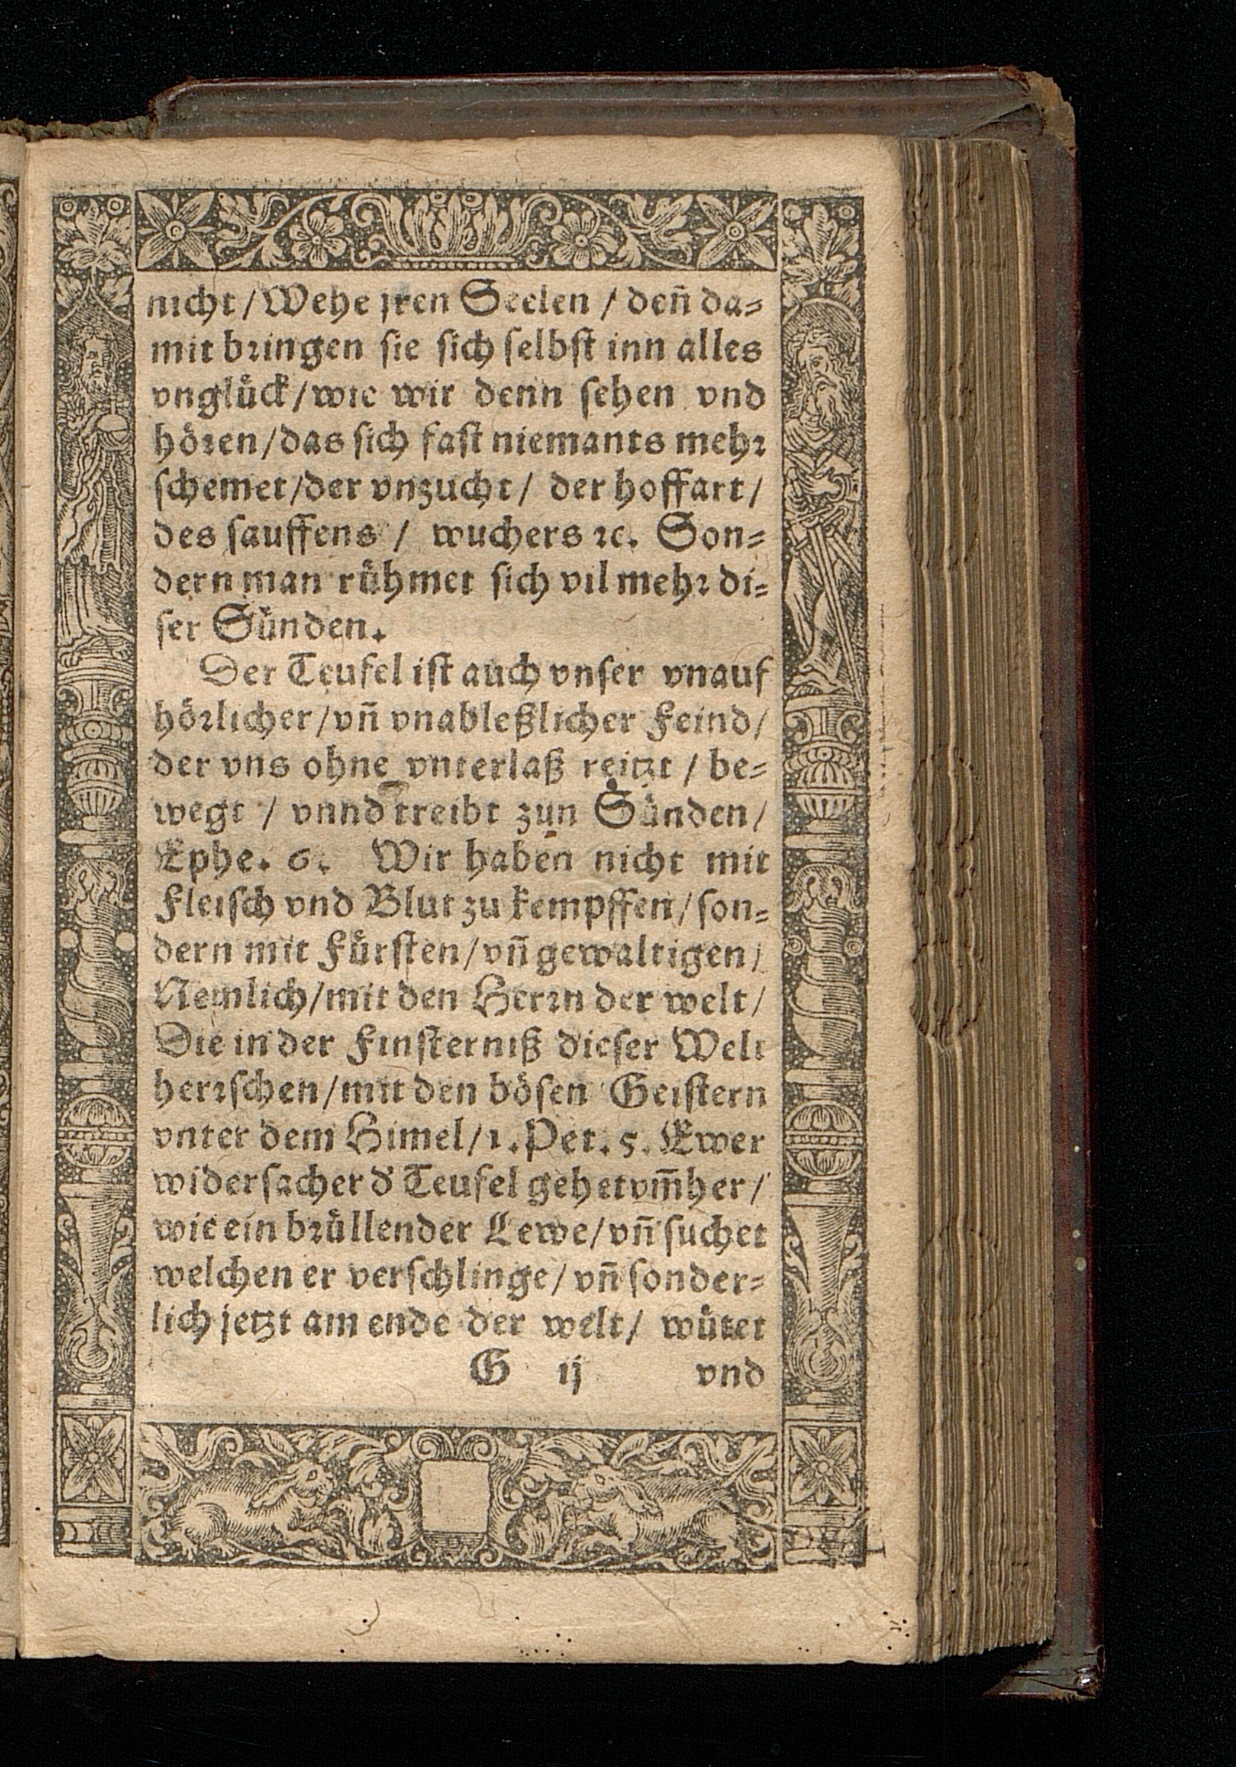 nicht / Wehe jren Seelen / deñ da⸗
mit bringen sie sich selbst inn alles
vnglück / wie wir denn sehen vnd
hören / das sich fast niemants mehr
schemet / der vnzucht / der hoffart /
des sauffens / wuchers ꝛc. Son⸗
dern man rühmet sich vil mehr di⸗
ser Sünden.
Der Teufel ist auch vnser vnauf
hörlicher / vñ vnableßlicher Feind /
der vns ohne vnterlaß reitzt / be⸗
wegt / vnnd treibt zun Sünden /
Ephe. 6. Wir haben nicht mit
Fleisch vnd Blut zu kempffen / son⸗
dern mit Fürsten / vñ gewaltigen /
Nemlich / mit den Herrn der welt /
Die in der Finsterniß dieser Welt
herrschen / mit den bösen Geistern
vnter dem Himel / 1. Pet. 5. Ewer
widersacher d' Teufel gehet vm̃her /
wie ein brüllender Lewe / vñ suchet
welchen er verschlinge / vñ sonder⸗
lich jetzt am ende der welt / wütet
G ij vnd